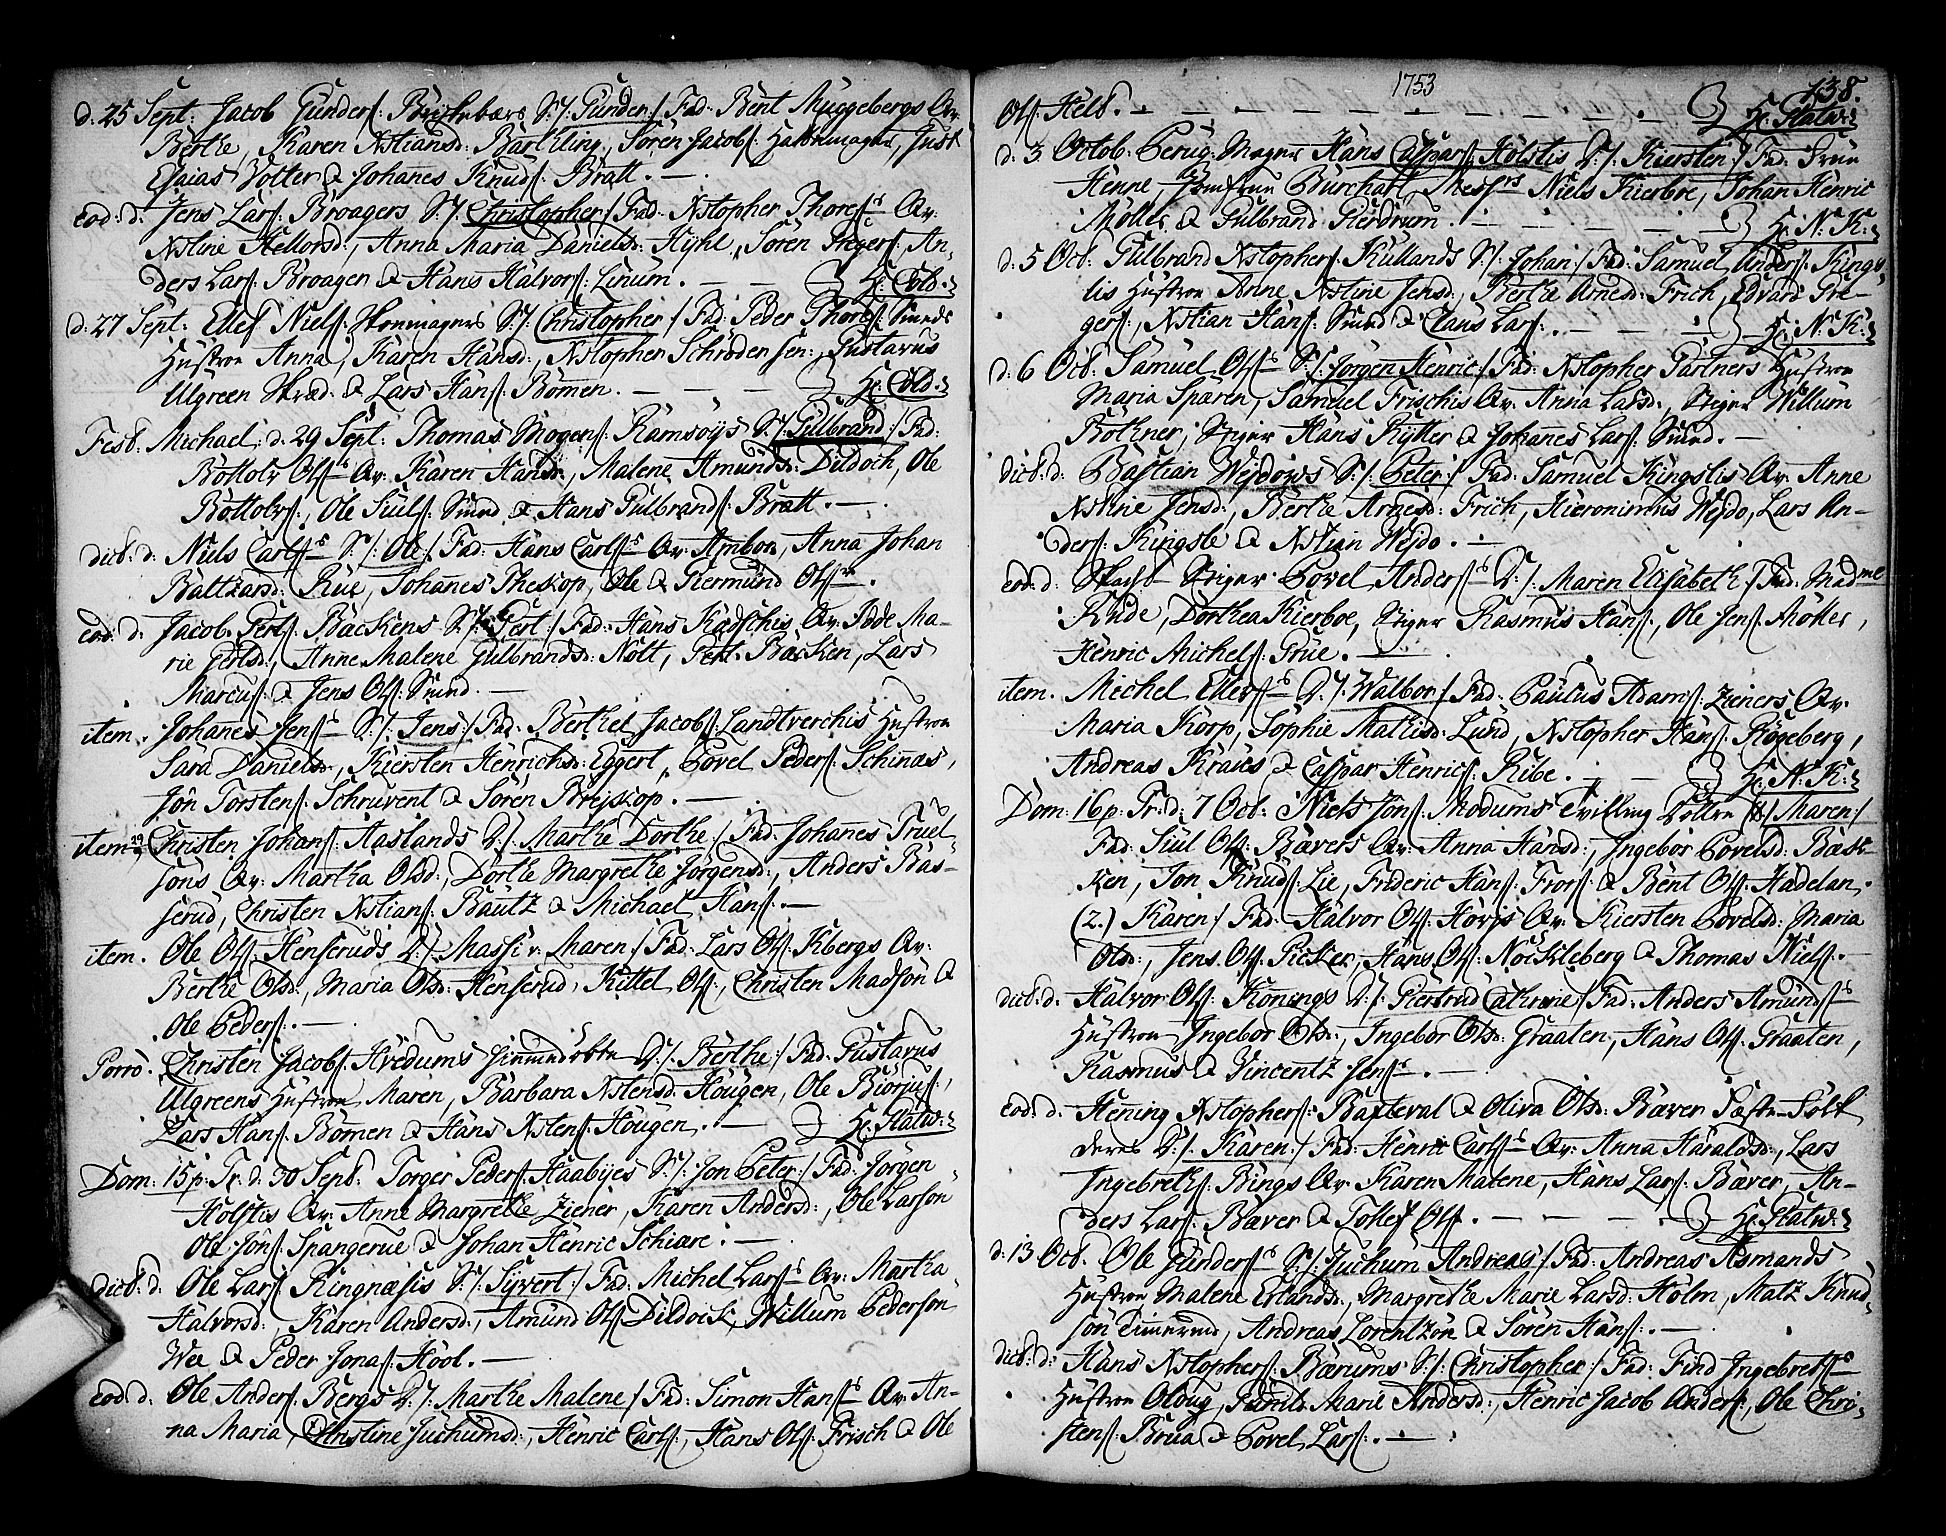 d. 25 Sept: Jacob Gunders: S:/: Gunder:/ Fad: Bent Muggebergs Qv:
Berthe, Karen Xstiansd: Bartling, Sören Jacobs: Hattemager, Just
Esaias Wolter & Johanes Knuds: Bratt. —
eod: d: Jens Lars: Broagers S:/: Christopher:/ Fad: Xstopher Thores: Qv:
Xstine Kellorsd:, Anna Maria Danielsd: Kyhl, Sören Ingers:, An-
ders Lars: Broager & Hans Halvors: Linum. — — H: Cold.
d: 27 Sept: Ellef Niels: Skomagers S:/: Christopher:/ Fad: Peder Thors: Smeds
Hustrue Anna, Karen Hansd:, Xstopher Schröder sen:, Gustavus
Ulgreen Skræd: & Lars Hans: Bömen. — — H: Cold.
Fest: Michael: d: 29 Sept: Thomas Mogens: Ramsöys S:/: Gulbrand:/ Fad:
Bottolv Ols: Qv: Karen Hansd:, Malene Amundsd: Dildoch, Ole
Bottolvs:, Ole Siuls: Smed & Hans Gulbrands: Bratt. —
dict: d: Niels Carls: S:/: Ole:/ Fad: Hans Carls: Qv: Ambor, Anna Johan
Baltzard: Rue, Johanes Theskop, Ole & Giermund Ols:
eod: d: Jacob Gerts: Backens S:/: Gert:/ Fad: Hans Kadschis Qv: Iode Ma-
rie Gertsd:, Anne Malene Gulbrandsd: Nolt, Gert Backen, Lars
Marcus: & Jens Ols: Smed. —
item. Johanes Jens: S:/: Jens:/ Fad: Berthel Jacobs: Landtverchis Hustrue
Sara Danielsd:, Kiersten Henrichsd: Eggert, Povel Peders: Schinnes,
Jön Torstens: Schruvent & Sören Brejskop. —
item 29 Christen Johans: Aaslands D:/: Marthe Dorthe:/ Fad: Johanes Truel-
sons Qv: Martha Olsd:, Dorthe Margrethe Jörgensd:, Anders Bas-
serud, Christen Xstians: Bautz & Michael Hans: —
item. Ole Ols: Henseruds D:/: Massi v: Maren:/ Fad: Lars Ols: Kbergs Qv:
Berthe Olsd:, Maria Olsd: Henserud, Kittel Ols:, Christen Madsön &
Ole Peders: —
Porro. Christen Jacobs: Hvedums D:/: Berthe:/ Fad: Gustavus
Ulgreens Hustrue Maren, Barbara Xstensd: Hougen, Ole Biörjus:,
Lars Hans: Bömen & Hans Xstens: Hougen. — H: Statw:
Dom: 15 p: Tr: d: 30 Sept: Torger Peders: Haabijes S:/: Jon Peter:/ Fad: Jörgen
Holstis Qv: Anne Margrethe Ziener, Karen Andersd:, Ole Larson
Ole Jöns: Spangerue & Johan Henric Schiære. —
dict: d: Ole Lars: Ringnæsis S:/: Sijvert:/ Fad: Michel Lars: Qv: Martha
Halvorsd:, Karen Andersd:, Amund Ols: Dildock, Willum Pederson
Wee & Peder Jonas: Hool. —
eod: d: Ole Anders: Bergs D:/: Marthe Malene:/ Fad: Simon Hans: Qv: An-
na Maria, Christine Juchumsd:, Henric Carls:, Hans Ols: Frisch & Ole
1753
138.
Ols: Helt. — — — H: Statw:
d: 3 Octob: Perüg: Mager Hans Caspar Holstis D:/: Kiersten:/ Fad: Frue
Henne, Jomfrue Burchalt, Mess:rs Niels Kierbre, Johan Henric
Möller & Gulbrand Gierdrum. — — H: N: K:
d: 5 Oct: Gulbrand Xstophers: Kullands S:/: Johan:/ Fad: Samuel Anders: Kings-
lis Hustrue Anne Xstine Jensd:, Berthe Arnesd: Frich, Edvard Gre-
gers:, Xstian Hans: Smed & Clans Lars: — — H: N: K:
d: 6 Oct: Samuel Ols: S:/: Jörgen Henric:/ Fad: Xstopher Partners Hustrue
Maria Sparen, Samuel Frischis Qv: Anna Larsd:, Stiger Willum
Rokner, Stiger Hans Rytter & Johanes Lars: Smed. —
dict: d: Bastian Wejdoves S:/: Peter:/ Fad: Samuel Kingslis Qv: Anne
Xstine Jensd:, Berthe Arnesd: Frich, Hieronimus Wejdo, Lars An-
ders: Kingsle & Xstian Wejdo. —
eod: d: Skacht Stiger Povel Anders: D:/: Maren Elisabeth:/ Fad: Madme
Rude, Dorthea Kierboe, Stiger Rasmus Hans:, Ole Jens: Möller,
Henric Michels: Grüe. —
item. Michel Ellers: D:/: Walbor:/ Fad: Paulus Adams: Zieners Qv:
Maria Korp, Sophie Mathisd: Lund, Xstopher Hans: Kogeberg,
Andreas Kraies & Caspar Henrics: Ribe. — — H: N: K:
Dom: 16 p: Tr: d: 7 Oct: Niels Jöns: Modums Tvilling Döttre (1) Maren:/
Fad: Siul Ols: Bævers Qv: Anna Hansd:, Ingebor Povelsd: Bæk-
ken, Jon Knuds: Lie, Frideric Hans: Frors: & Bent Ols: Hadelan.
(2.) Karen:/ Fad: Halvor Ols: Hovjs Qv: Kiersten Povelsd: Maria
Olsd:, Jens Ols: Picker, Hans Ols: Nöckleberg & Thomas Niels: —
dict: d: Halvor Ols: Konings D:/: Giertrud Cathrine:/ Fad: Anders Amunds:
Hustrue Ingebor Olsd:, Ingebor Olsd: Graaten, Hans Ols: Graaten,
Rasmus & Vincentz Jens: —
eod: d: Hening Xstophers: Baxteval & Oliva Olsd: Bæver Fæste-Folk
deres D:/: Karen:/ Fad: Henric Carls: Qv: Anna Haraldsd:, Lars
Ingebreths: Bings Qv: Karen Malene, Hans Lars: Bæver, An-
ders Lars: Bæver & Tollef Ols: — — H: Statw:
d: 13 Oct. Ole Gunders: S:/: Juchum Andreas:/ Fad: Andreas Asmands
Hustrue Malene Erlandsd:, Margrethe Marie Larsd: Holm, Matz Knud-
sön, Andreas Lorentzön & Sören Hans: —
dict: d: Hans Xstophers: Bærums S:/: Christopher:/ Fad: Find Ingebrets:
Hustrue Oloug, Marie Andersd:, Henric Jacob Anders:, Ole Chri-
stens: Brua & Povel Lars: —